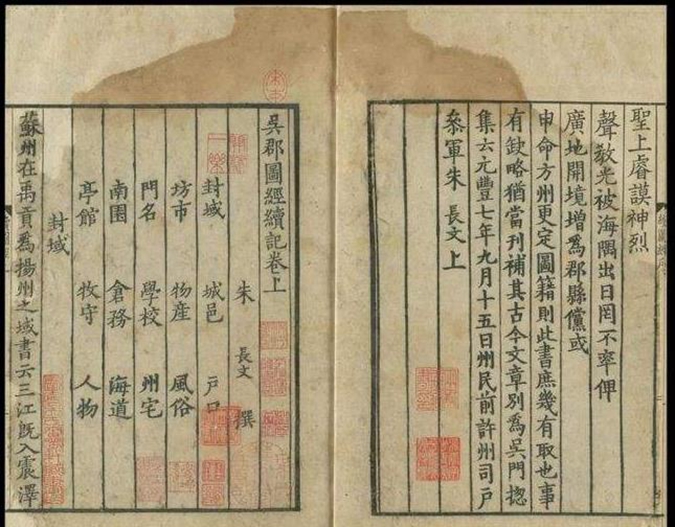 聖上睿謨神烈
聲敎光被海隅出日罔不率俾
廣地開境增爲郡縣儻或
申命方州更定圖籍則此書庶幾有取也事
有缺略猶當刊補其古今文章別爲吳門揔
集云元豐七年九月十五日州民前許州司戶
叅軍朱 長文上
吳郡圖經續記卷上
朱 長文 撰
封域 城邑 戶口
坊市 物產 風俗
門名 學校 州宅
南園 倉務 海道
亭館 牧守 人物
封域
蘇州在禹貢爲揚州之域書云三江旣入震澤